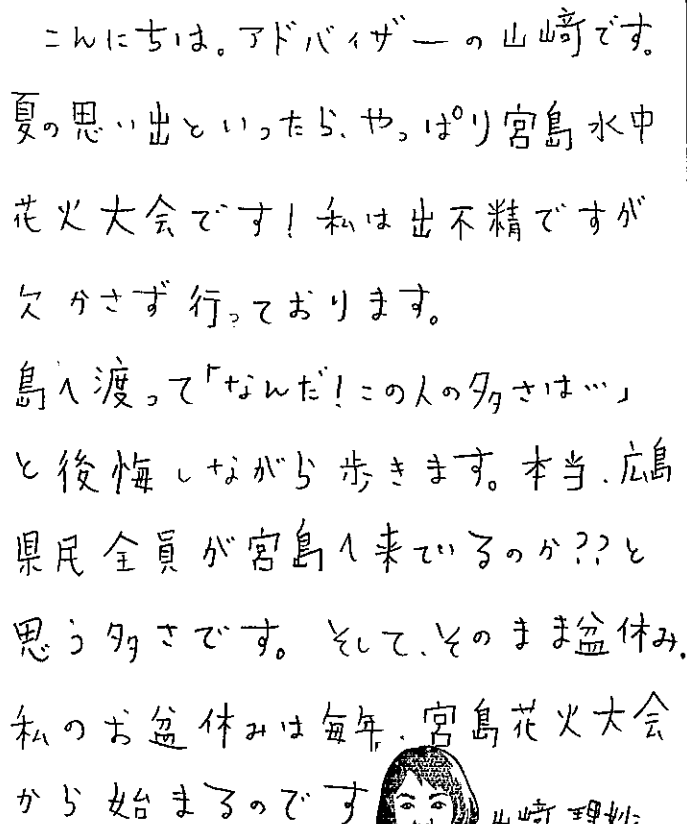 こんにちは。アドバイザーの山﨑です。
夏の思い出といったら、やっぱり宮島水中
花火大会です！私は出不精ですが
欠かさず行っております。
島へ渡って「なんだ！この人の多さは…」
と後悔しながら歩きます。本当、広島
県民全員が宮島へ来ているのか??と
思う多さです。そして、そのまま盆休み.
私のお盆休みは毎年、宮島花火大会
から始まるのです
山﨑